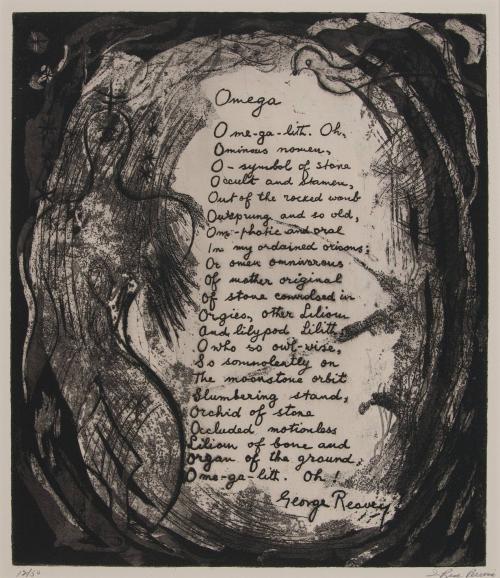 Omega
O me-ga-lith. Oh,
Ominous nomen,
O- symbol of stone
Occult and Stamen,
Out of the rocked womb
Outsprung and so old,
Om-phatic and oral
In my ordained orisons;
Or omen omnivorous
Of mother original
Of stone convolsed in
Orgies, other Lilium
And lilypod Lilith;
O who so owl-wise,
So somnolently on
The moonstone orbit
Slumbering stand,
Orchid of stone
Occluded motionless
Lilium of bone and
Organ of the ground,
O me-ga-lith. Oh!
George Reavey
12/50